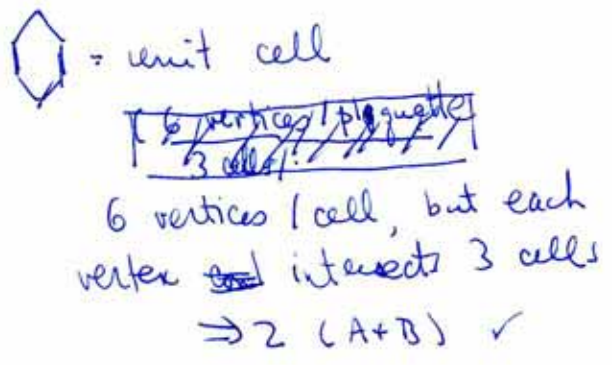 = unit cell
6 vertices / plaquette
3 cells /
6 vertices / cell, but each
vertex intersects 3 cells
⇒ 2 (A+B) ✓